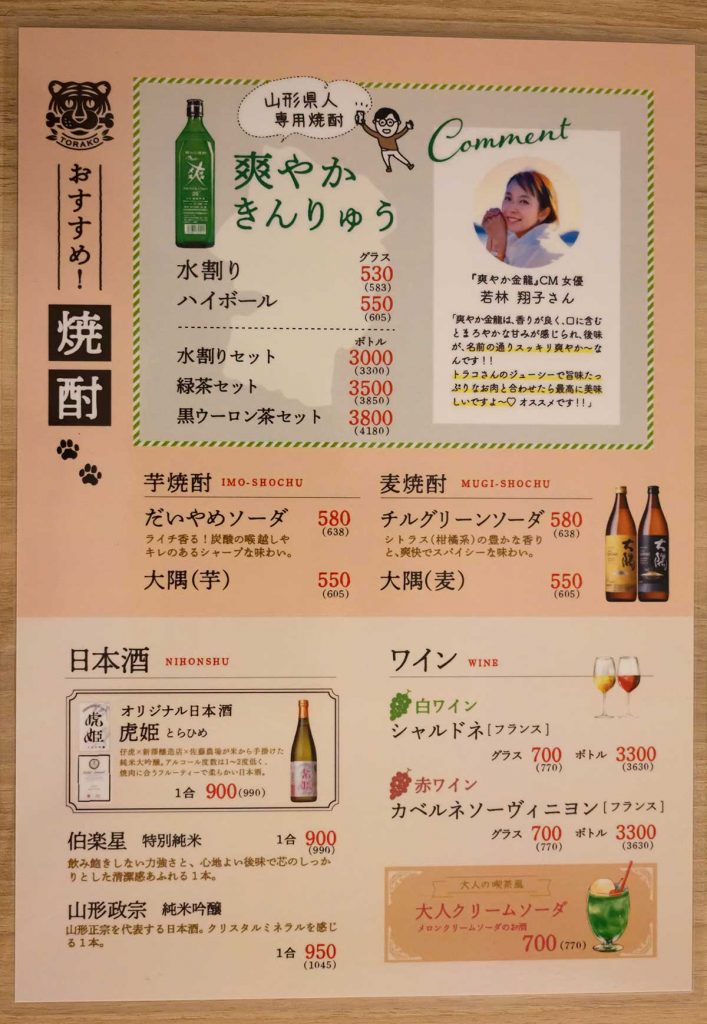 TORAKO
おすすめ!
焼酎
山形県人
専用焼酎
爽やか
きんりゅう
グラス
水割り 530
(583)
ハイボール 550
(605)
ボトル
水割りセット 3000
(3300)
緑茶セット 3500
(3850)
黒ウーロン茶セット 3800
(4180)
Comment
『爽やか金龍』CM女優
若林 翔子さん
「爽やか金龍は、香りが良く、口に含む
とまろやかな甘みが感じられ、後味
が、名前の通りスッキリ爽やか〜な
んです!!
トラコさんのジューシーで旨味たっ
ぷりなお肉と合わせたら最高に美味
しいですよ〜♡ オススメです!!」
芋焼酎 IMO-SHOCHU
だいやめソーダ 580
(638)
ライチ香る!炭酸の喉越しや
キレのあるシャープな味わい。
大隅(芋) 550
(605)
麦焼酎 MUGI-SHOCHU
チルグリーンソーダ 580
(638)
シトラス(柑橘系)の豊かな香り
と、爽快でスパイシーな味わい。
大隅(麦) 550
(605)
大隅
大隅
日本酒 NIHONSHU
虎姫
オリジナル日本酒
虎姫 とらひめ
仔虎×新澤醸造店×佐藤農場が米から手掛けた
純米大吟醸。アルコール度数は1〜2度低く、
焼肉に合うフルーティーで柔らかい日本酒。
1合 900(990)
伯楽星 特別純米 1合 900
(990)
飲み飽きしない力強さと、心地よい後味で芯のしっか
りとした清潔感あふれる1本。
山形政宗 純米吟醸
山形正宗を代表する日本酒。クリスタルミネラルを感じ
る1本。
1合 950
(1045)
ワイン WINE
白ワイン
シャルドネ[フランス]
グラス 700 ボトル 3300
(770) (3630)
赤ワイン
カベルネソーヴィニヨン[フランス]
グラス 700 ボトル 3300
(770) (3630)
大人の喫茶風
大人クリームソーダ
メロンクリームソーダのお酒
700(770)